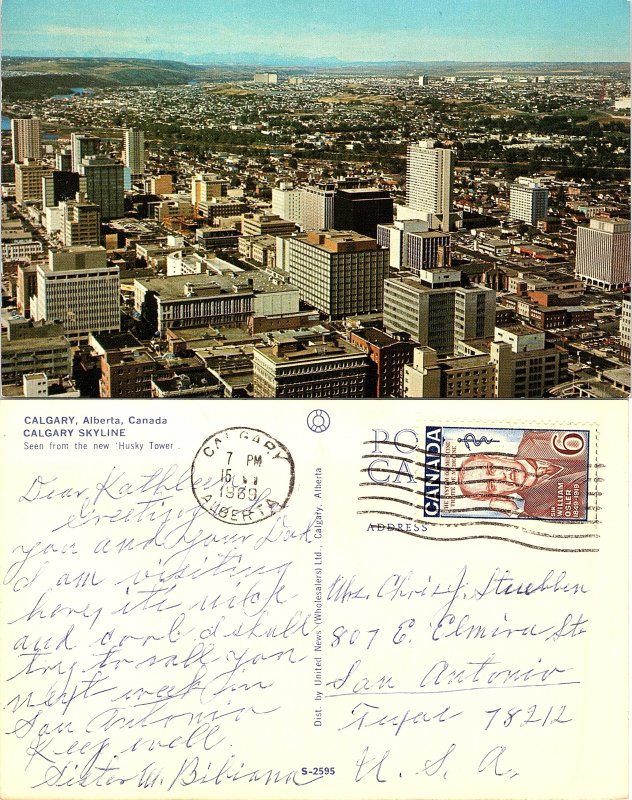 CALGARY, Alberta, Canada
CALGARY SKYLINE
Seen from the new 'Husky Tower.
CALGARY
7 PM
15 VI
1969
ALBERTA
PO
CA
ADDRESS
CANADA
6
SIR
WILLIAM
OSLER
1849-1919
Dear Kathleen
Greetings
you and your Dad
I am visiting
here, it's nice
and cool I shall
try to call you
next week in
San Antonio
Keep well.
Sister M. Bibiana
Dist. by United News (Wholesalers) Ltd., Calgary, Alberta
S-2595
Mrs. Chris J. Stuebben
807 E. Elmira St
San Antonio
Texas 78212
U. S. A.